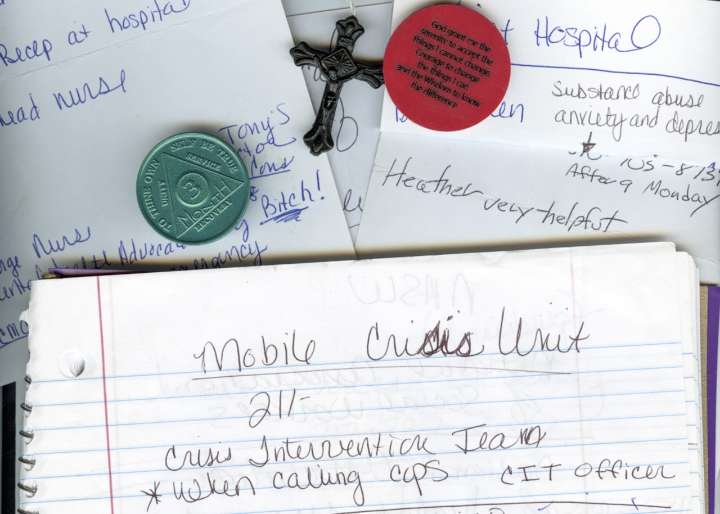 Recep at hospital
head nurse
Tony's
Bitch!
Nurse
Advoca
TO THINE OWN SELF BE TRUE
UNITY
SERVICE
RECOVERY
3
MONTH
God grant me the
serenity to accept the
things I cannot change,
Courage to change
the things I can
and the Wisdom to know
the difference
Hospital
Substance abuse
anxiety and depres
After 9 Monday
Heather very helpful
Mobile Crisis Unit
211-
Crisis Intervention Team
* When calling cops CIT Officer